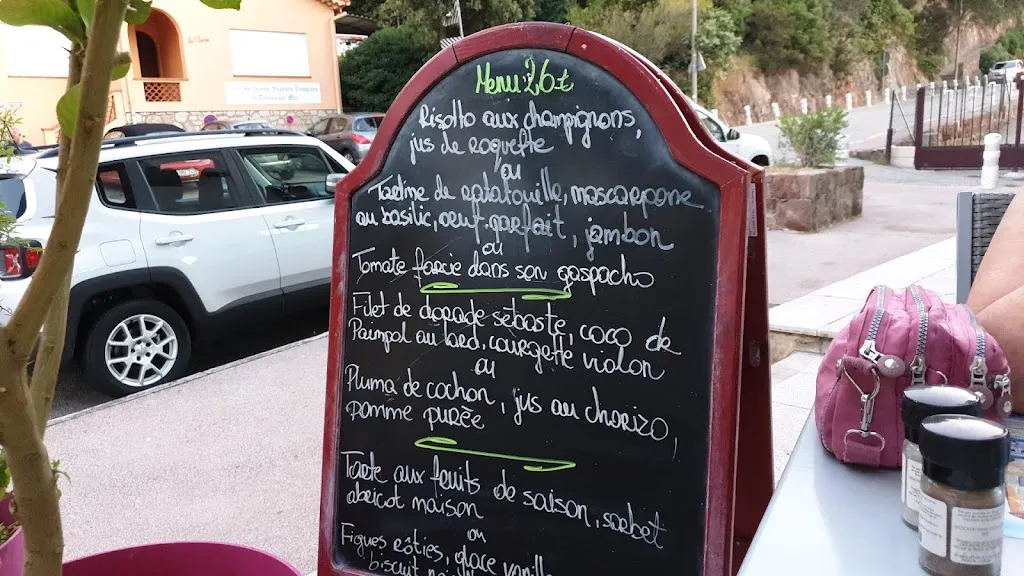 Menu 26€
Risotto aux champignons,
jus de roquette
ou
Tartine de ratatouille, mascarpone
au basilic, oeuf parfait, jambon
ou
Tomate farcie dans son gaspacho
Filet de dorade sébaste, coco de
Paimpol au lard, courgette violon
ou
Pluma de cochon, jus au chorizo,
pomme purée
Tarte aux fruits de saison, sorbet
abricot maison
ou
Figues rôties, glace vanille
biscuit